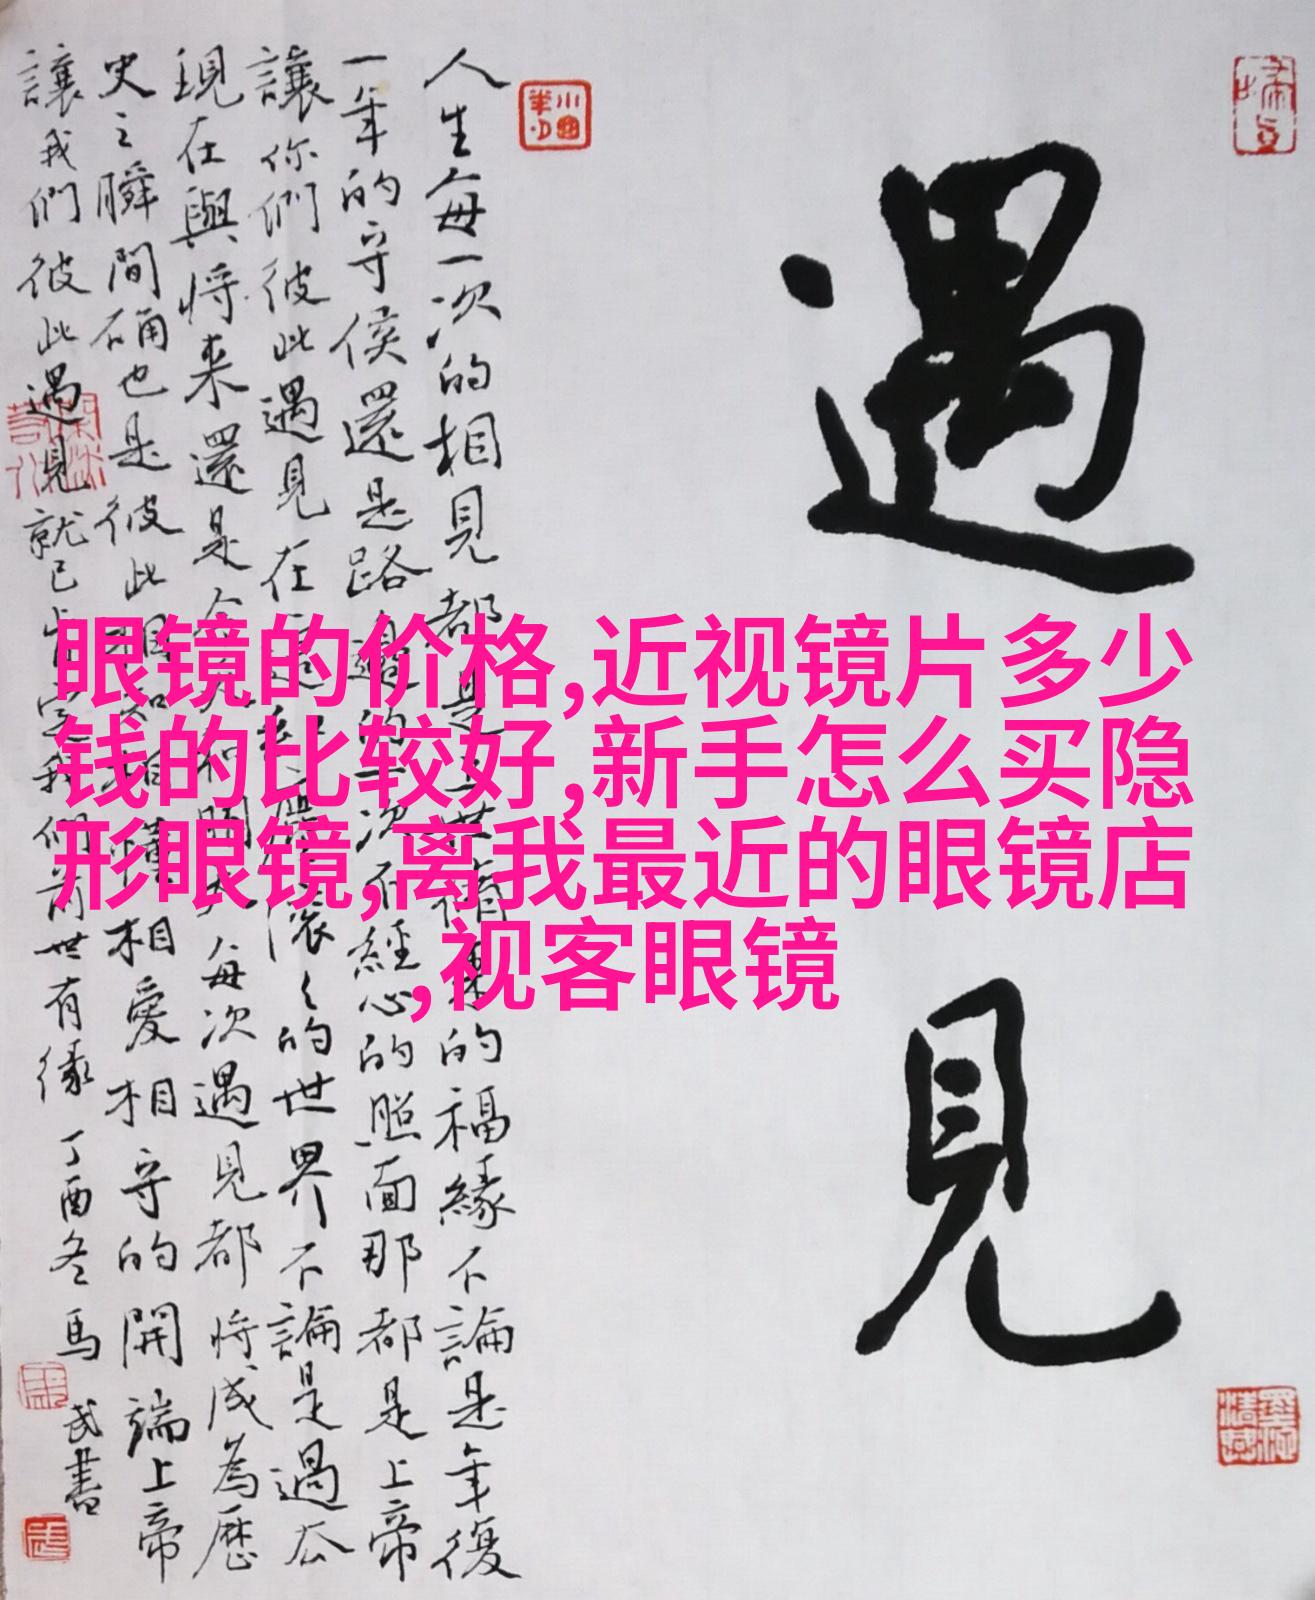 遇見
人生每一次的相見都是世脩来的福緣不論是年復
一年的守侯還是路邊的一次不經心的照面那都是上帝
讓你們彼此遇見在這滾々的世界不論是過厺
現在與將来還是今天和明天每次遇見都將成為歷
史之瞬間确也是彼此相知相惜相愛相守的開端上帝
讓我們彼此遇見就已肯定我們前世有缘 丁酉冬馬武書
眼镜的价格,近视镜片多少
钱的比较好,新手怎么买隐
形眼镜,离我最近的眼镜店
,视客眼镜